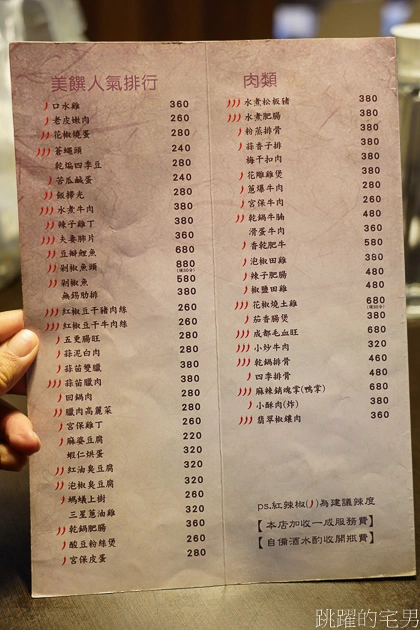 美饌人氣排行
口水雞 360
老皮嫩肉 260
花椒燒蛋 280
蒼蠅頭 240
乾煸四季豆 280
苦瓜鹹蛋 240
飯掃光 280
水煮牛肉 380
辣子雞丁 380
夫妻肺片 360
豆瓣鯉魚 680
剁椒魚頭 880
剁椒魚 580
無錫肋排 380
紅椒豆干豬肉絲 260
紅椒豆干牛肉絲 260
五更腸旺 280
蒜泥白肉 280
蒜苗雙臘 380
蒜苗臘肉 380
回鍋肉 280
臘肉高麗菜 280
宮保雞丁 260
麻婆豆腐 220
蝦仁烘蛋 320
紅油臭豆腐 320
泡椒臭豆腐 320
螞蟻上樹 260
三星蔥油雞 320
乾鍋肥腸 360
酸豆粉絲煲 260
宮保皮蛋 280
肉類
水煮松板豬 380
水煮肥腸 380
粉蒸排骨 380
蒜香子排 380
梅干扣肉 380
花雕雞煲 380
蔥爆牛肉 260
宮保牛肉 260
乾鍋牛腩 480
滑蛋牛肉 360
香乾肥牛 580
泡椒田雞 480
辣子肥腸 480
椒鹽田雞 480
花椒燒土雞 680
茄香腸煲 380
成都毛血旺 680
小炒牛肉 320
乾鍋排骨 460
四季排骨 480
麻辣鎖魂掌(鴨掌) 680
小酥肉(炸) 380
翡翠椒鑲肉 360
ps.紅辣椒( )為建議辣度
【本店加收一成服務費】
【自備酒水酌收開瓶費】
跳躍的宅男